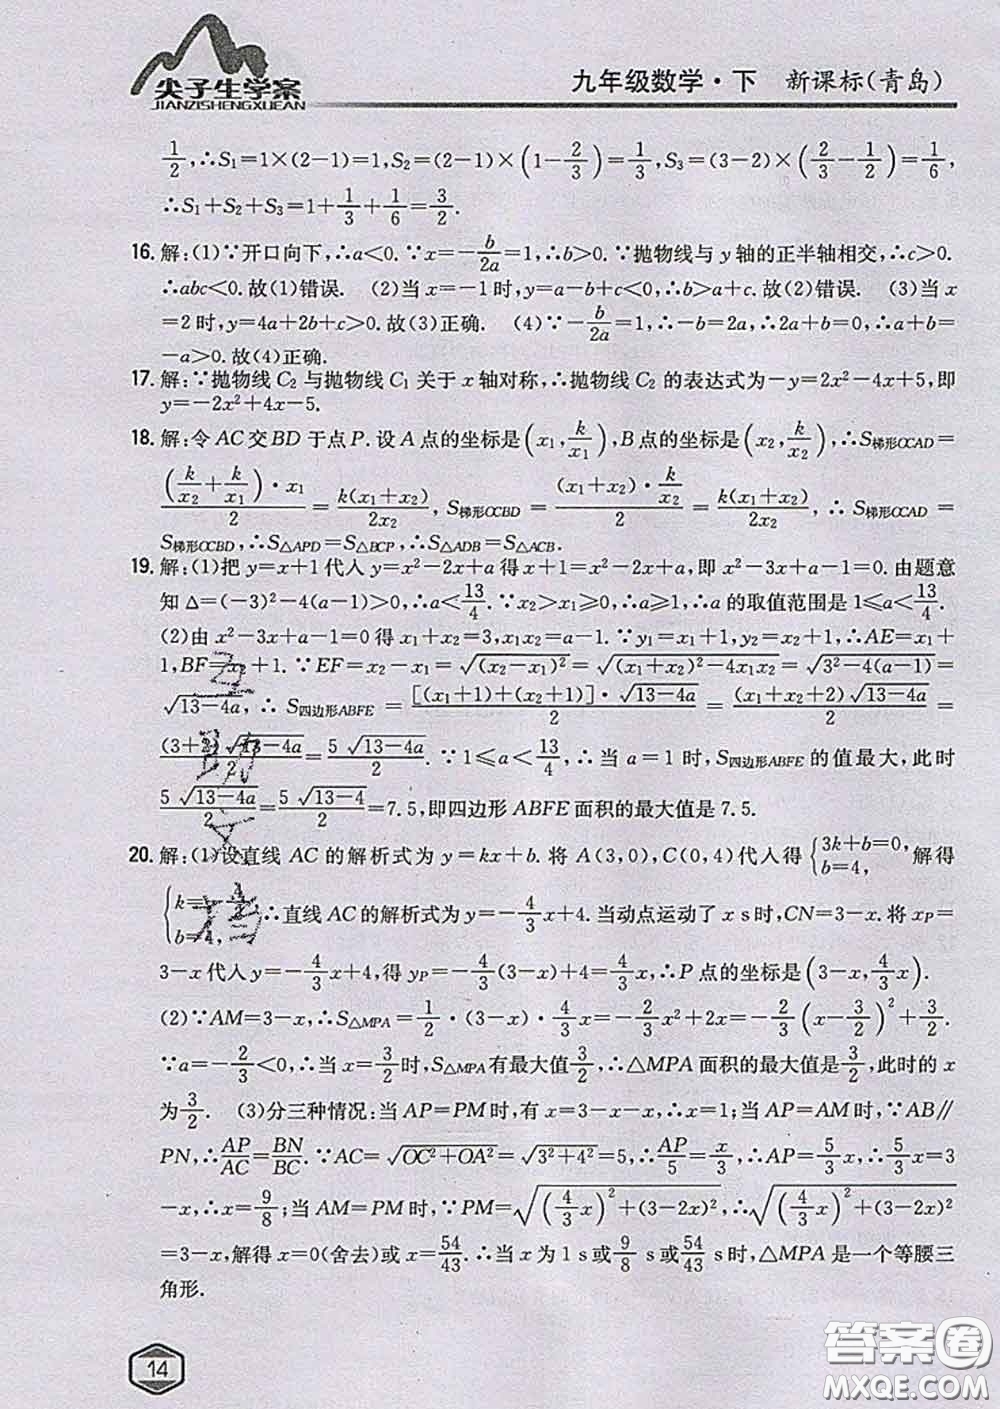 尖子生学案
JIANZISHENGXUEAN
九年级数学·下 新课标(青岛)
1/2,∴S₁=1×(2-1)=1,S₂=(2-1)×(1-2/3)=1/3,S₃=(3-2)×(2/3-1/2)=1/6,
∴S₁+S₂+S₃=1+1/3+1/6=3/2.
16. 解:(1)∵开口向下,∴a<0.∵x=-b/2a=1,∴b>0.∵抛物线与y轴的正半轴相交,∴c>0.
∴abc<0.故(1)错误. (2)当x=-1时,y=a-b+c<0,∴b>a+c.故(2)错误. (3)当x
=2时,y=4a+2b+c>0.故(3)正确. (4)∵-b/2a=1,∴-b=2a,∴2a+b=0,∴a+b=
-a>0.故(4)正确.
17. 解:∵抛物线C₂与抛物线C₁关于x轴对称,∴抛物线C₂的表达式为-y=2x²-4x+5,即
y=-2x²+4x-5.
18. 解:令AC交BD于点P.设A点的坐标是(x₁,k/x₁),B点的坐标是(x₂,k/x₂),∴S梯形OCAD=
(k/x₂+k/x₁)·x₁/2=k(x₁+x₂)/2x₂,S梯形OCBD=(x₁+x₂)·k/x₂/2=k(x₁+x₂)/2x₂,∴S梯形OCAD=
S梯形OCBD,∴S△APD=S△BCP,∴S△ADB=S△ACB.
19. 解:(1)把y=x+1代入y=x²-2x+a得x+1=x²-2x+a,即x²-3x+a-1=0.由题意
知Δ=(-3)²-4(a-1)>0,∴a<13/4.∵x₂>x₁≥0,∴a≥1,∴a的取值范围是1≤a<13/4.
(2)由x²-3x+a-1=0得x₁+x₂=3,x₁x₂=a-1.∵y₁=x₁+1,y₂=x₂+1,∴AE=x₁+
1,BF=x₂+1.∵EF=x₂-x₁=√(x₂-x₁)²=√(x₁+x₂)²-4x₁x₂=√3²-4(a-1)=
√13-4a,∴S四边形ABFE=[(x₁+1)+(x₂+1)]·√13-4a/2=(x₁+x₂+2)√13-4a/2=
(3+2)√13-4a/2=5√13-4a/2.∵1≤a<13/4,∴当a=1时,S四边形ABFE的值最大,此时
5√13-4a/2=5√13-4/2=7.5,即四边形ABFE面积的最大值是7.5.
20. 解:(1)设直线AC的解析式为y=kx+b.将A(3,0),C(0,4)代入得{3k+b=0, b=4,解得
{k=-4/3, b=4,∴直线AC的解析式为y=-4/3x+4.当动点运动了x s时,CN=3-x.将xP=
3-x代入y=-4/3x+4,得yP=-4/3(3-x)+4=4/3x,∴P点的坐标是(3-x,4/3x).
(2)∵AM=3-x,∴S△MPA=1/2·(3-x)·4/3x=-2/3x²+2x=-2/3(x-3/2)²+3/2.
∵a=-2/3<0,∴当x=3/2时,S△MPA有最大值3/2,∴△MPA面积的最大值是3/2,此时的x
为3/2. (3)分三种情况:当AP=PM时,有x=3-x-x,∴x=1;当AP=AM时,∵AB∥
PN,∴AP/AC=BN/BC.∵AC=√OC²+OA²=√3²+4²=5,∴AP/5=x/3,∴AP=5/3x,∴5/3x=3
-x,∴x=9/8;当AM=PM时,∵PM=√(4/3x)²+(3-2x)²,∴√(4/3x)²+(3-2x)²
=3-x,解得x=0(舍去)或x=54/43.∴当x为1 s或9/8 s或54/43 s时,△MPA是一个等腰三
角形.
互助文档
14
答案圈
MXQE.COM